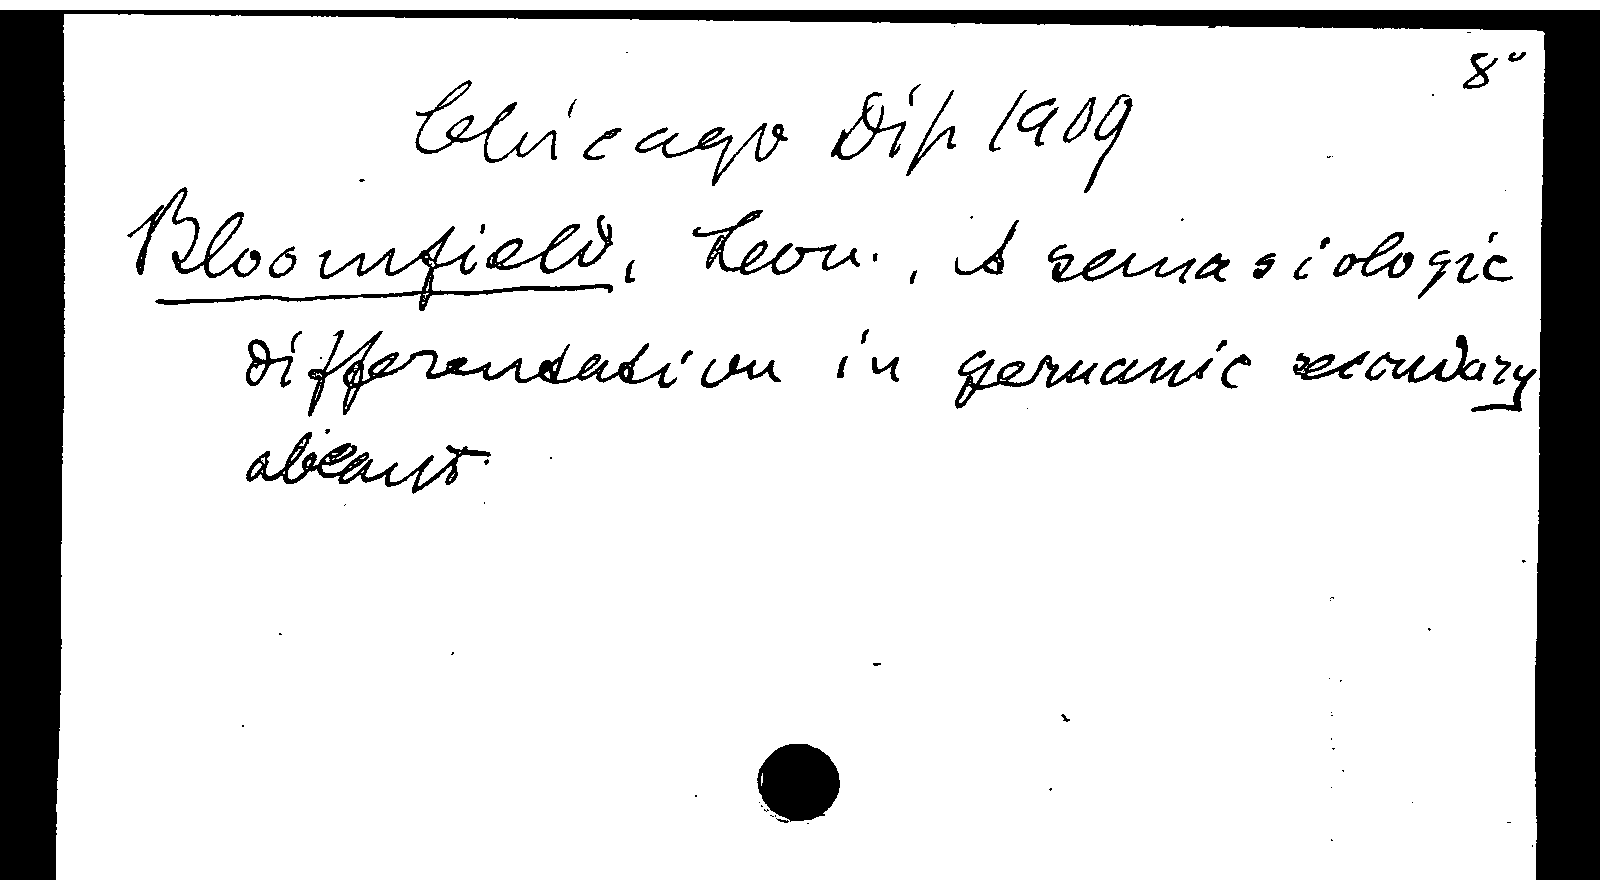 8°
Chicago Diss 1909
Bloomfield, Leon., A semasiologic
differentation in germanic secondary
ablaut